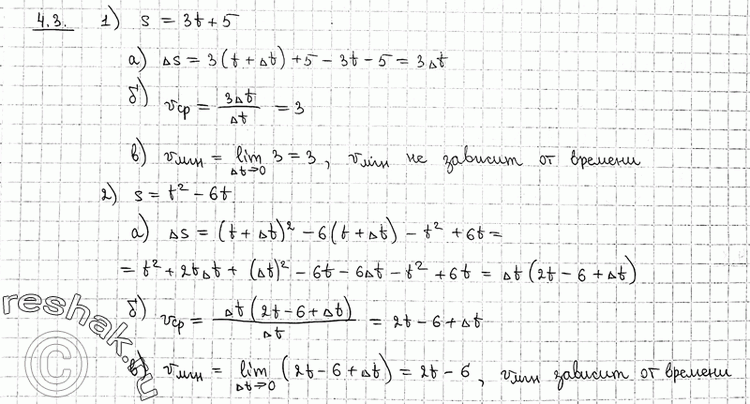 4.3. 1) s = 3t + 5
а) Δs = 3(t + Δt) + 5 − 3t − 5 = 3Δt
б) vср = 3Δt/Δt = 3
в) vмгн = lim Δt→0 3 = 3, vмгн не зависит от времени
2) s = t² − 6t
а) Δs = (t + Δt)² − 6(t + Δt) − t² + 6t =
= t² + 2tΔt + (Δt)² − 6t − 6Δt − t² + 6t = Δt(2t − 6 + Δt)
б) vср = Δt(2t − 6 + Δt)/Δt = 2t − 6 + Δt
в) vмгн = lim Δt→0 (2t − 6 + Δt) = 2t − 6, vмгн зависит от времени
reshak.ru
©